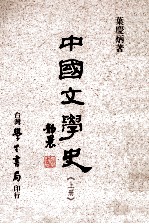 葉慶炳著
中國文學史
《上册》
台灣學生書局印行